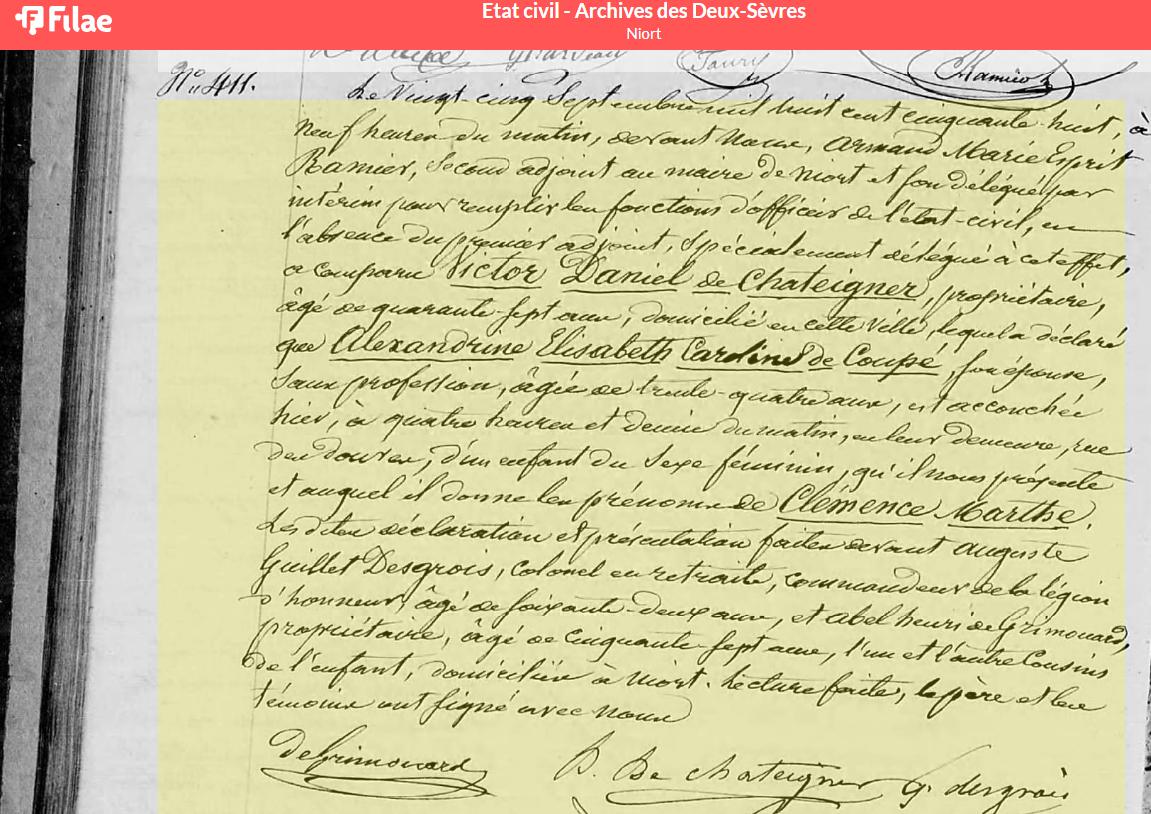 Filae
Etat civil - Archives des Deux-Sèvres
Niort
N° 411.
Le Vingt-cinq Septembre mil huit cent cinquante-huit, à
neuf heures du matin, devant Nous, Armand Marie Esprit
Ramier, Second adjoint au maire de Niort et son délégué par
intérim pour remplir les fonctions d'officier de l'état-civil, en
l'absence du premier adjoint, spécialement délégué à cet effet,
a comparu Victor Daniel de Chateigner, propriétaire,
âgé de quarante-sept ans, domicilié en cette ville, lequel a déclaré
que Alexandrine Elisabeth Caroline de Coupé, son épouse,
sans profession, âgée de trente-quatre ans, est accouchée
hier, à quatre heures et demie du matin, en leur demeure, rue
des douves, d'un enfant du sexe féminin, qu'il nous présente
et auquel il donne les prénoms de Clémence Marthe.
Les dites déclaration et présentation faites devant Auguste
Guillet Desgrois, Colonel en retraite, commandeur de la légion
d'honneur, âgé de soixante-deux ans, et abel henri de Grimouard,
propriétaire, âgé de cinquante-sept ans, l'un et l'autre Cousins
de l'enfant, domiciliés à Niort. Lecture faite, le père et les
témoins ont signé avec Nous
De Grimouard De Chateigner G. desgrois